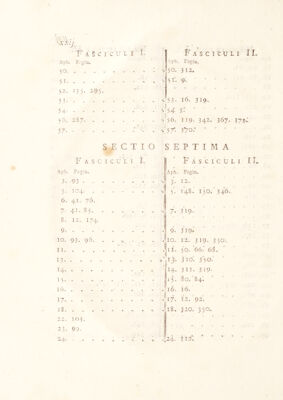 xxij
FASCICULI I. FASCICULI II.
Aph. Pagin. Aph. Pagin.
50. . . . . . . 50. 312.
51. . . . . . . 51. 9.
52. 135. 295.
53. . . . . . . 53. 16. 319.
54. . . . . . . 54.
56. 287. . . . . 56. 119. 342. 167. 175.
57. . . . . . . 57. 170.
SECTIO SEPTIMA
FASCICULI I. FASCICULI II.
Aph. Pagin. Aph. Pagin.
3. 93. . . . . . 3. 12.
5. 104. . . . . . 5. 148. 150. 346.
6. 41. 76.
7. 41. 85. . . . . 7. 319.
8. 12. 174.
9. . . . . . . 9. 319.
10. 93. 96. . . . . 10. 12. 319. 350.
11. . . . . . . 11. 50. 66. 68.
13. . . . . . . 13. 310. 350.
14. . . . . . . 14. 311. 319.
15. . . . . . . 15. 80. 84.
16. . . . . . . 16. 16.
17. . . . . . . 17. 12. 92.
18. . . . . . . 18. 320. 350.
22. 105.
23. 99.
24. . . . . . . 24. 312.